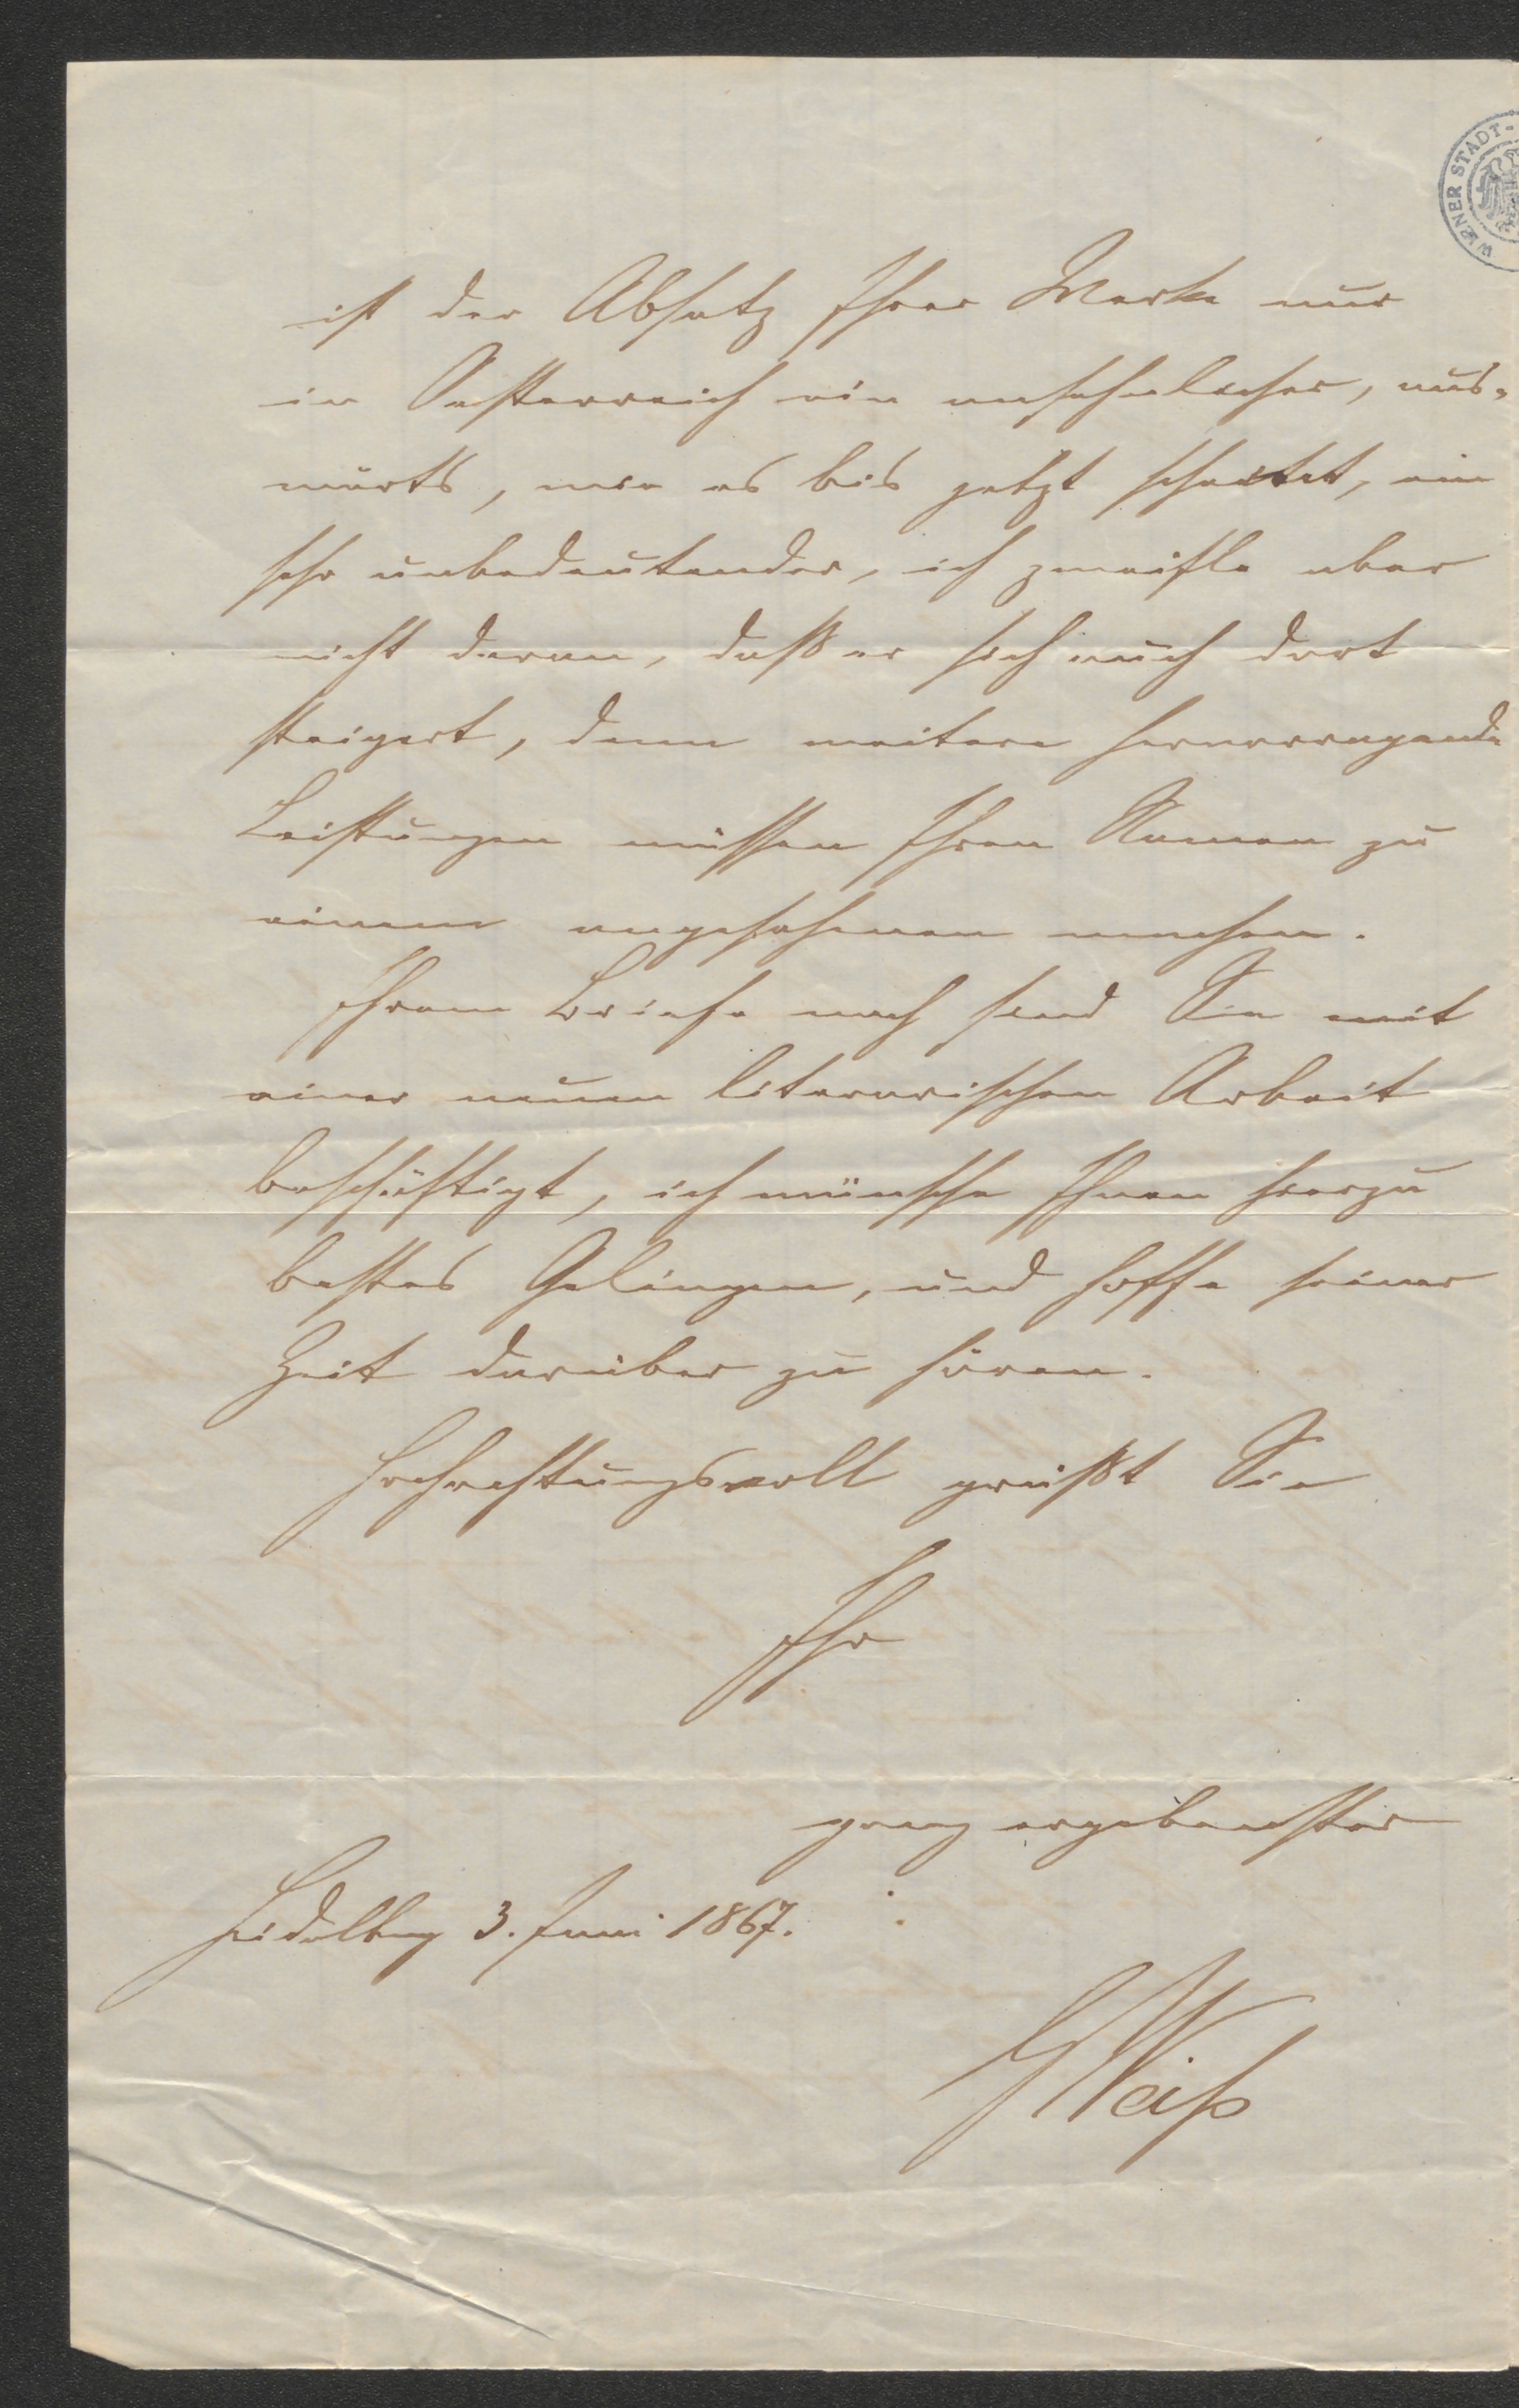 WIENER STADT-
ist der Absatz Ihrer Werke nur
in Oesterreich ein ansehnlicher, aus-
wärts, wie es bis jetzt scheint, ein
sehr unbedeutender, ich zweifle aber
nicht daran, daß er sich auch dort
steigert, denn weitere hervorragende
Leistungen müssen Ihren Namen zu
einem angesehenen machen.
Ihrem Briefe nach sind Sie mit
einer neuen literarischen Arbeit
beschäftigt, ich wünsche Ihnen hierzu
bestes Gelingen, und hoffe seiner
Zeit darüber zu hören.
Hochachtungsvoll grüßt Sie
Ihr
ganz ergebenster
Heidelberg 3. Juni 1867.
GWeiß